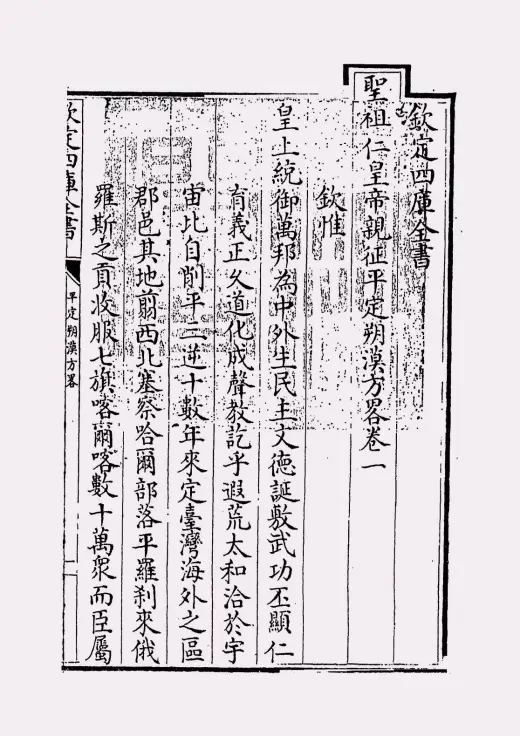 欽定四庫全書
聖祖仁皇帝親征平定朔漠方畧卷一
欽惟
皇上統御萬邦為中外生民主文德誕敷武功丕顯仁
育義正久道化成聲教訖乎遐荒太和洽於宇
宙比自削平三逆十數年來定臺灣海外之區
郡邑其地翦西北塞察哈爾部落平羅刹來俄
羅斯之貢收服七旗喀爾喀數十萬衆而臣屬
欽定四庫全書
平定朔漠方畧
一